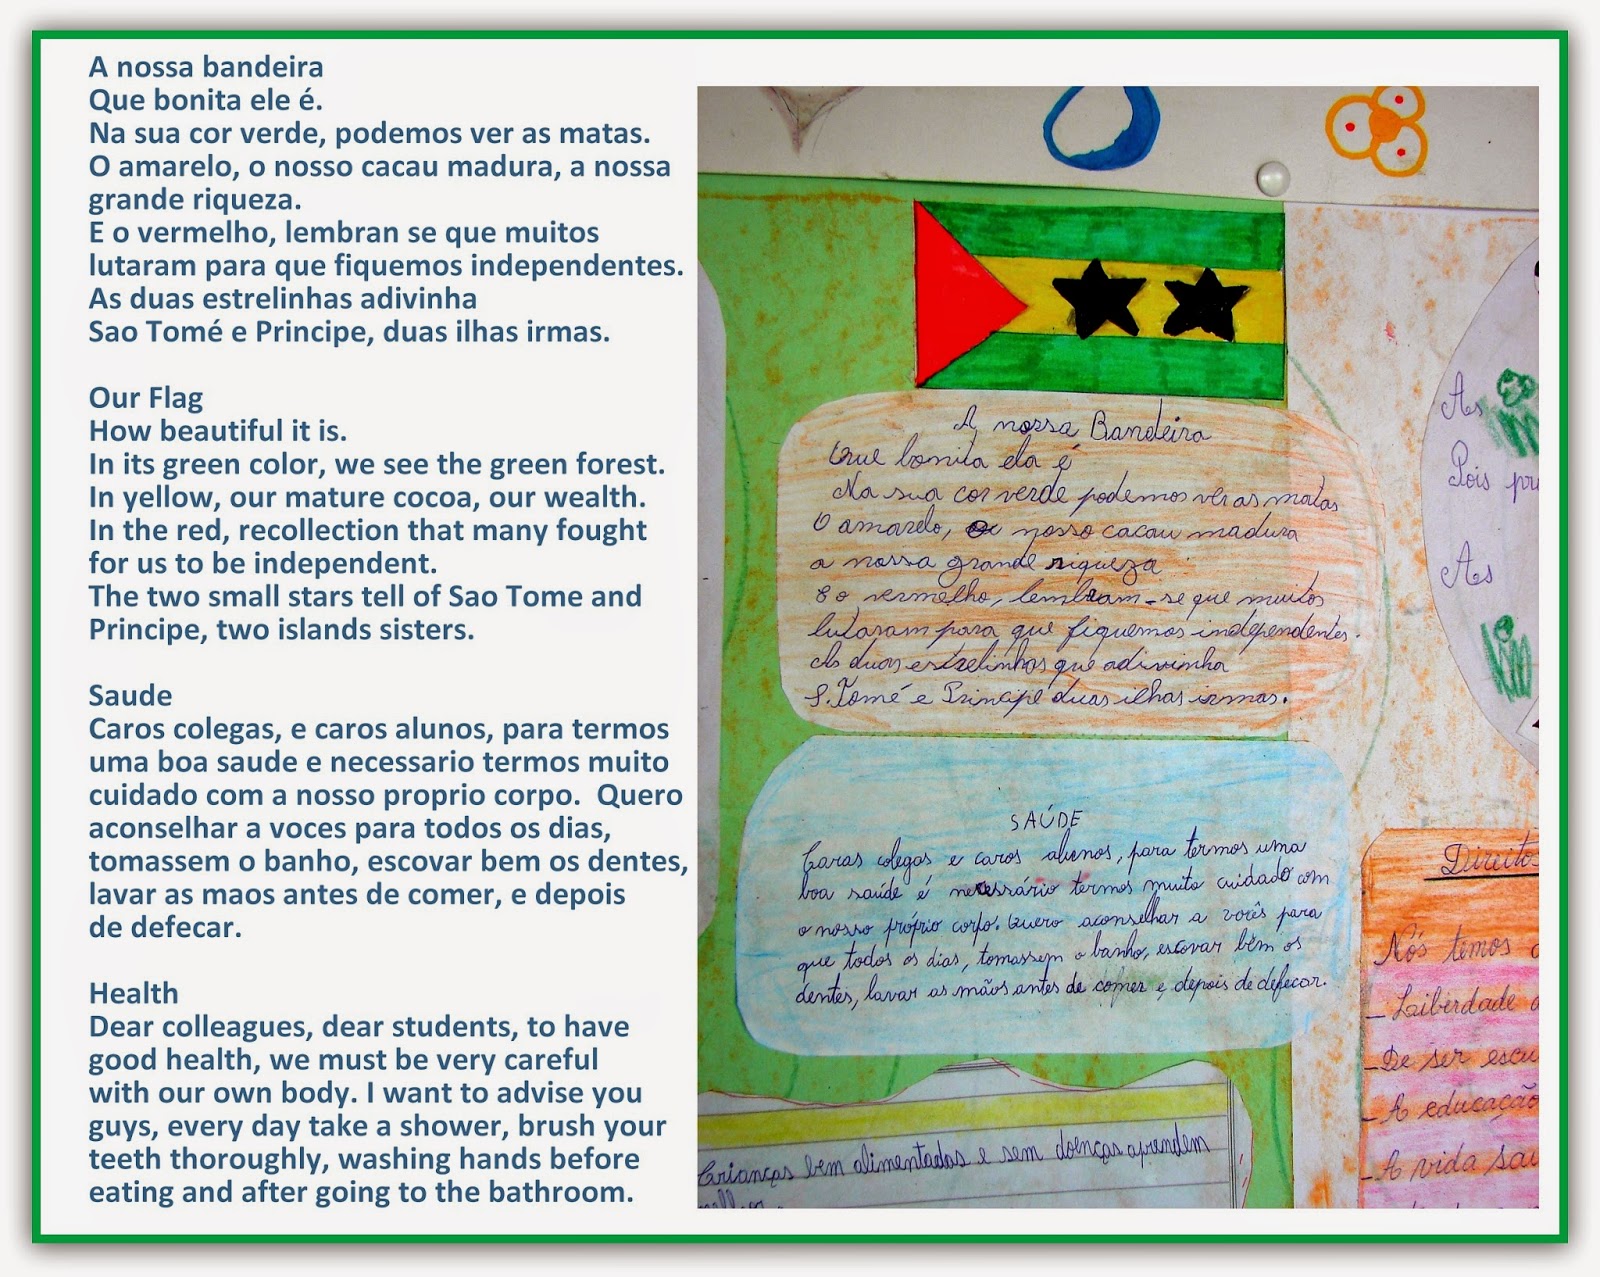 A nossa bandeira
Que bonita ele é.
Na sua cor verde, podemos ver as matas.
O amarelo, o nosso cacau madura, a nossa
grande riqueza.
E o vermelho, lembran se que muitos
lutaram para que fiquemos independentes.
As duas estrelinhas adivinha
Sao Tomé e Principe, duas ilhas irmas.
Our Flag
How beautiful it is.
In its green color, we see the green forest.
In yellow, our mature cocoa, our wealth.
In the red, recollection that many fought
for us to be independent.
The two small stars tell of Sao Tome and
Principe, two islands sisters.
Saude
Caros colegas, e caros alunos, para termos
uma boa saude e necessario termos muito
cuidado com a nosso proprio corpo. Quero
aconselhar a voces para todos os dias,
tomassem o banho, escovar bem os dentes,
lavar as maos antes de comer, e depois
de defecar.
Health
Dear colleagues, dear students, to have
good health, we must be very careful
with our own body. I want to advise you
guys, every day take a shower, brush your
teeth thoroughly, washing hands before
eating and after going to the bathroom.
A nossa Bandeira
Que bonita ela é
Na sua cor verde podemos ver as matas
O amarelo, o nosso cacau madura
a nossa grande riqueza
E o vermelho, lembram-se que muitos
lutaram para que fiquemos independentes.
As duas estrelinhas que adivinha
S. Tomé e Principe duas ilhas irmas.
SAÚDE
Caros colegas e caros alunos, para termos uma
boa saúde é necessário termos muito cuidado com
o nosso próprio corpo. Quero aconselhar a vocês para
que todos os dias, tomassem o banho, escovar bêm os
dentes, lavar as mãos antes de comer e depois de defecar.
Crianças bem alimentadas e sem doenças aprendem
As
Pois
As
Direitos
Nós temos
_ Laiberdade
_ De ser
_ A educação
_ A vida